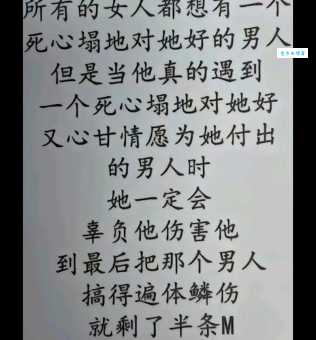 所有的女人都想有一个
死心塌地对她好的男人
但是当他真的遇到
一个死心塌地对她好
又心甘情愿为她付出
的男人时
她一定会
辜负他伤害他
到最后把那个男人
搞得遍体鳞伤
就剩了半条M